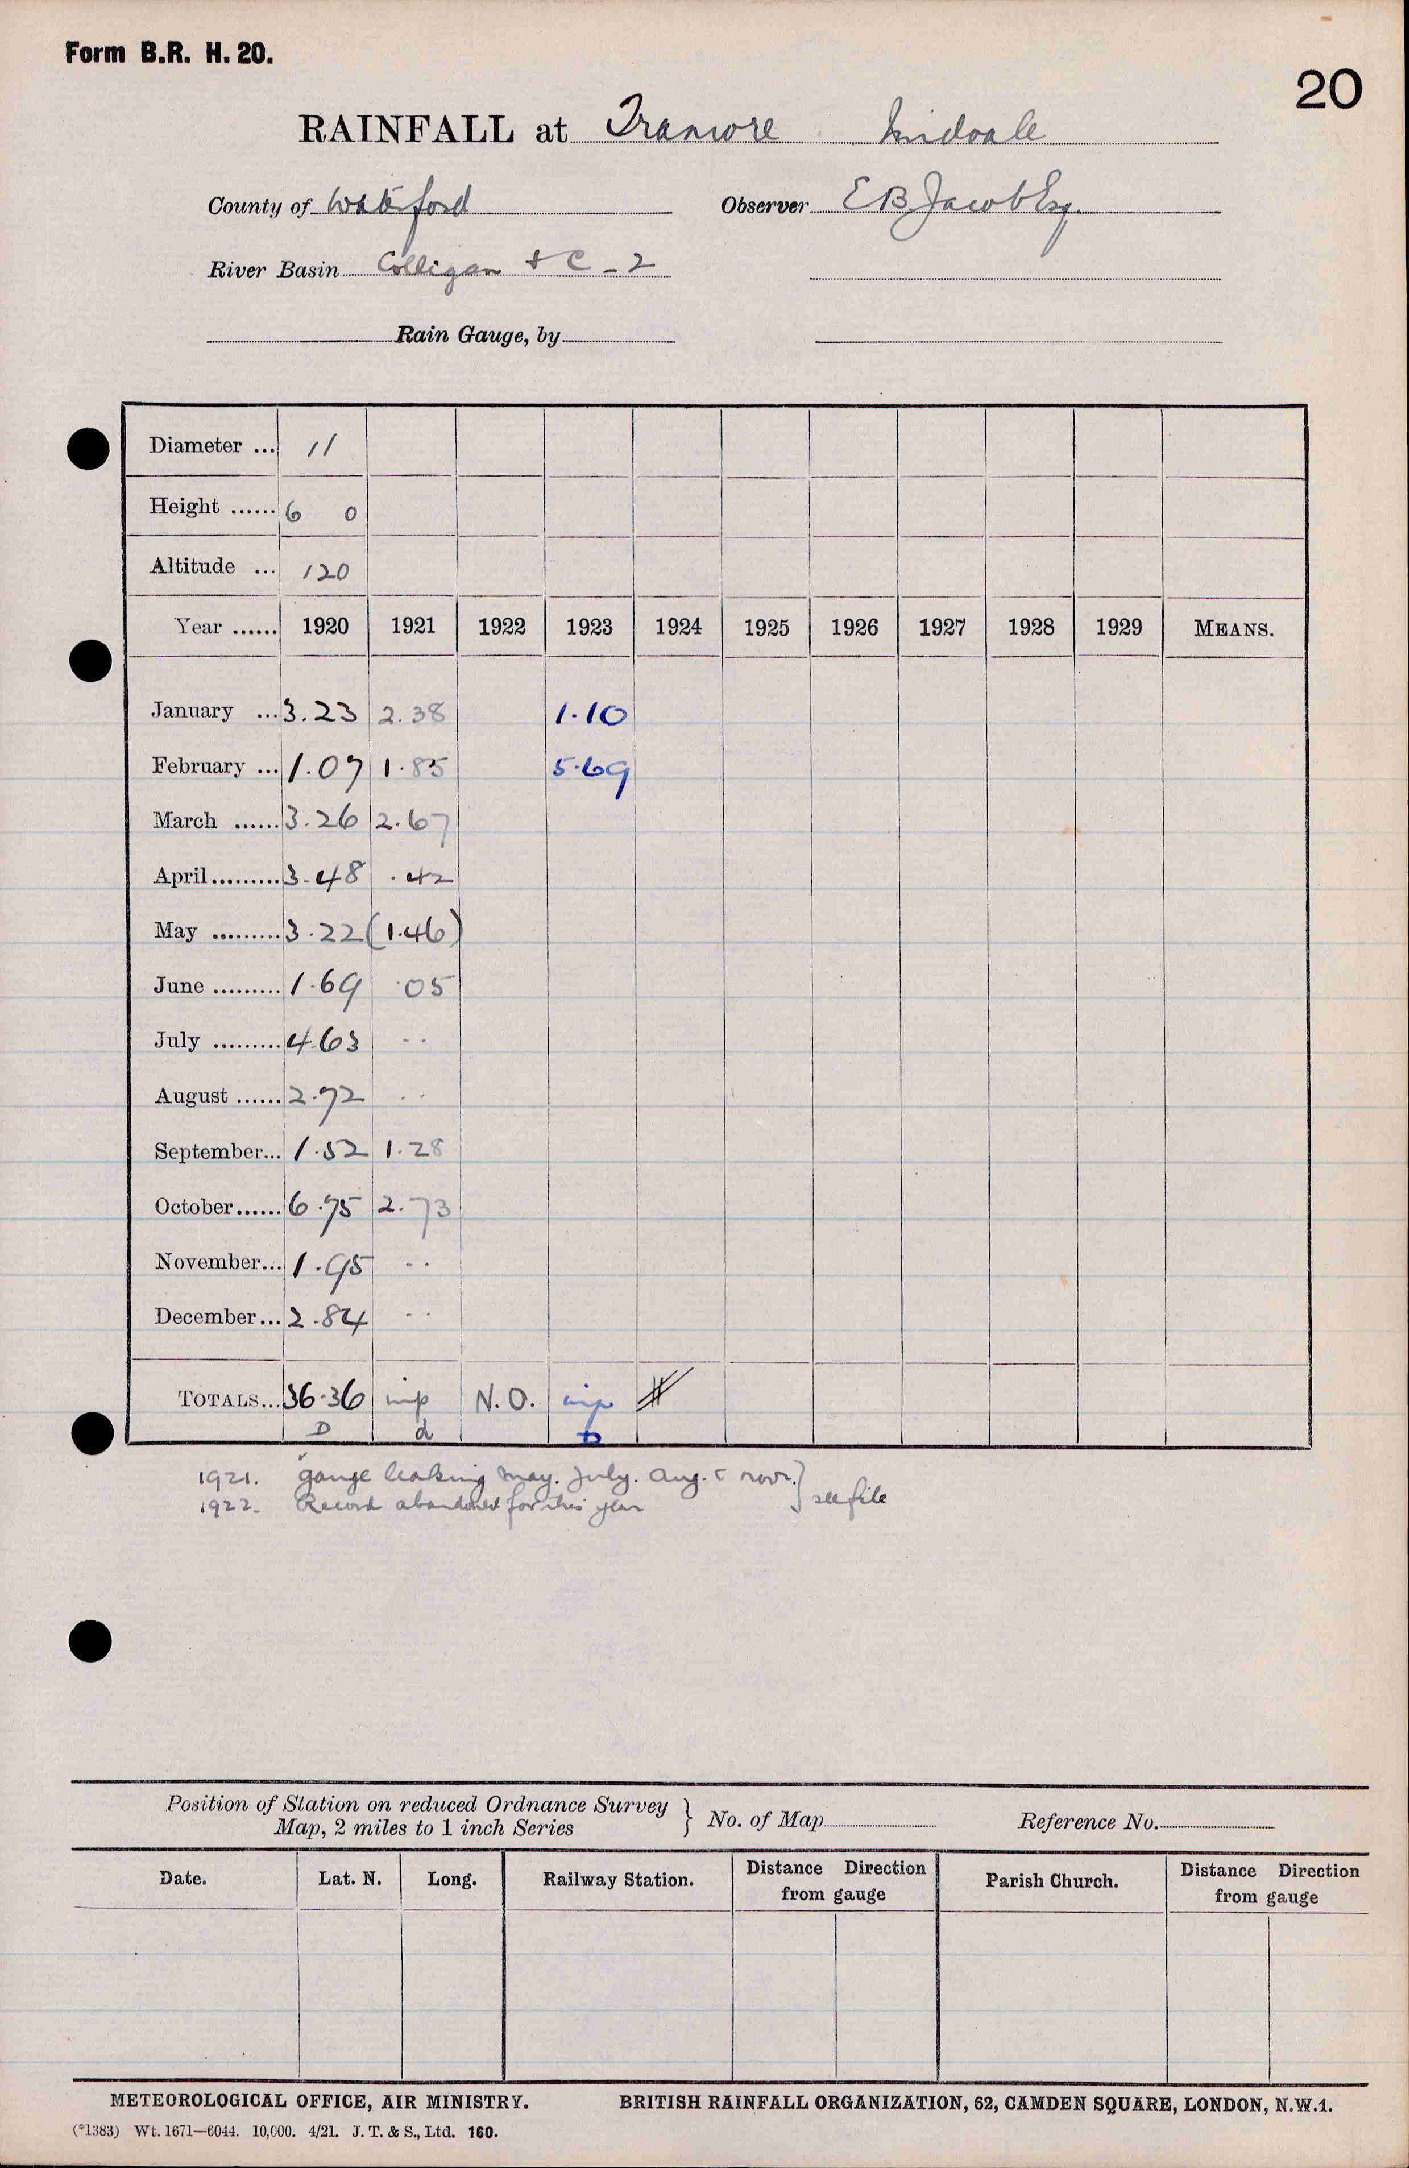 Form B.R. H. 20.
20
RAINFALL at Tramore
County of Waterford Observer E B Jacob Esq.
River Basin Colligan & C - 2
Rain Gauge, by
Diameter ... 11
Height ...... 6 0
Altitude ... 120
Year ...... 1920 1921 1922 1923 1924 1925 1926 1927 1928 1929 MEANS.
January ... 3.23 2.38 1.10
February ... 1.07 1.85 5.69
March ...... 3.26 2.67
April ......... 3.48 .42
May ......... 3.22 (1.46)
June ......... 1.69 .05
July ......... 4.63 ..
August ...... 2.72 ..
September... 1.52 1.28
October...... 6.75 2.73
November... 1.95 ..
December... 2.84 ..
TOTALS... 36.36 imp N.O. imp
D d D
1921. gauge leaking May. July. Aug. & Nov. } see file
1922. Record abandoned for this year
Position of Station on reduced Ordnance Survey } No. of Map Reference No.
Map, 2 miles to 1 inch Series
Date. Lat. N. Long. Railway Station. Distance Direction from gauge Parish Church. Distance Direction from gauge
METEOROLOGICAL OFFICE, AIR MINISTRY. BRITISH RAINFALL ORGANIZATION, 62, CAMDEN SQUARE, LONDON, N.W.1.
(*1383) Wt. 1671—6044. 10,000. 4/21. J. T. & S., Ltd. 160.